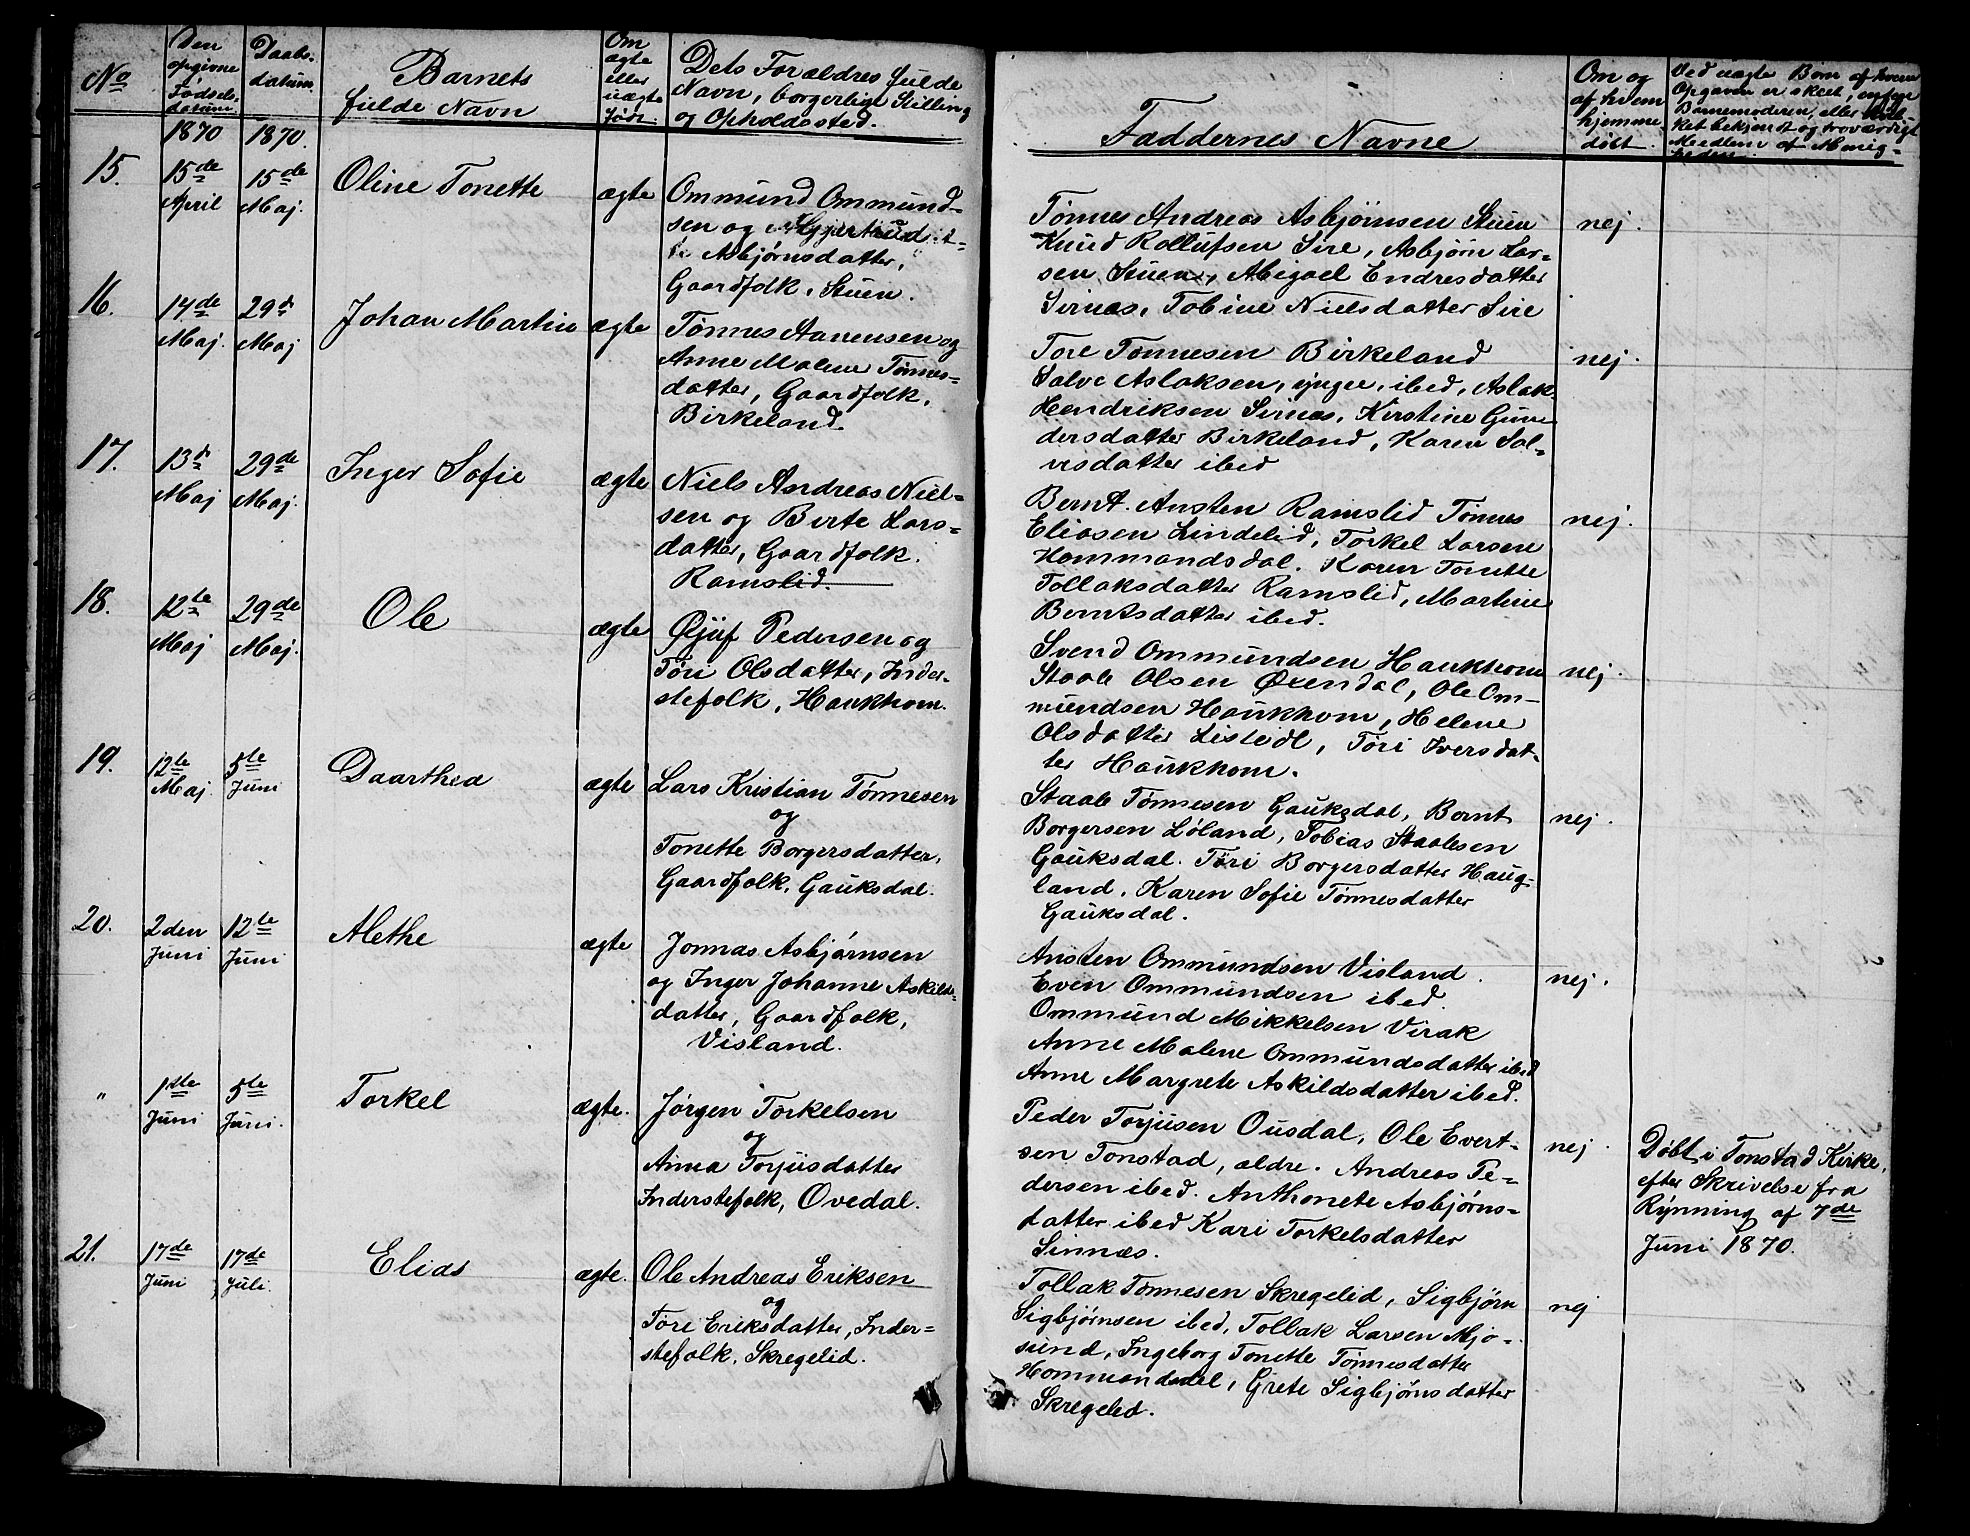 No
Den
opgivne
Fødsels-
datum.
Daabs-
datum.
Barnets
fulde Navn
Om
ægte
eller
uægte
født.
Dets Forældres fulde
Navn, borgerlige Stilling
og Opholdssted.
Faddernes Navne
Om og
af hvem
hjemme
døbt.
Ved uægte Børn af hvem
Opgaven er skeet, enten
Barnemoderen, eller
ket bekjendt og troværdigt
Medlem af Menig-
heden.
1870
1870.
15.
15de
April
15de
Maj.
Oline Tonette
ægte
Ommund Ommund-
sen og
Asbjørnsdatter,
Gaardfolk, Stuen.
Tønnes Andreas Asbjørnsen Stuen
Knud Rollufsen Sire, Asbjørn Lar-
sen Stuen, Abigael Endresdatter
Sirnæs, Tobine Nielsdatter Sire
nej.
16.
14de
Maj.
29d
Maj
Johan Martin
ægte
Tønnes Aanensen og
Anne Malene Tønnes-
datter, Gaardfolk,
Birkeland.
Tore Tønnesen Birkeland
Salve Aslaksen, yngre, ibed, Aslak
Hendriksen Sirnæs, Kirstine Gun
dersdatter Birkeland, Karen Sal-
vesdatter ibed
nej.
17.
13d
Maj
29de
Maj.
Inger Sofie
ægte
Niels Andreas Niel-
sen og Birte Lars-
datter, Gaardfolk.
Ramslid.
Bernt Ansten Ramslid Tønnes
Eliasen Lindelid, Torkel Larsen
Hommandsdal. Karen Tonette
Tollaksdatter Ramslid, Martine
Berntsdatter ibed.
nej.
18.
12te
Maj
29de
Maj.
Ole
ægte
Øjuf Pedersen og
Tøri Olsdatter, Inder-
stefolk, Haukhom.
Svend Ommundsen Haukhom
Staale Olsen Øxendal, Ole Om-
mundsen Haukhom, Helene
Olsdatter Listeidl, Tøri Iversdat-
ter Haukhom.
nej.
19.
12te
Maj.
5te
Juni
Daarthea
ægte
Lars Kristian Tønnesen
og
Tonette Borgersdatter,
Gaardfolk, Gauksdal.
Staale Tønnesen Gauksdal, Bernt
Borgersen Løland, Tobias Staalesen
Gauksdal. Tøri Borgersdatter Haug-
land, Karen Sofie Tønnesdatter
Gauksdal.
nej.
20.
2den
Juni
12te
Juni
Alethe
ægte
Jonnas Asbjørnsen
og Inger Johanne Askilds-
datter, Gaardfolk,
Visland.
Ansten Ommundsen Visland.
Even Ommundsen ibed
Ommund Mikkelsen Virak
Anne Malene Ommundsdatter ibed
Anne Margrete Askildsdatter ibed.
nej.
"
1ste
Juni
5te
Juni.
Torkel
ægte.
Jørgen Torkelsen
og
Anna Torjusdatter
Inderstefolk, Ovedal.
Peder Torjusen Ousdal, Ole Evert-
sen Tonstad, ældre. Andreas Pe-
dersen ibed. Anthonete Asbjørns-
datter ibed Kari Torkelsdatter
Sinnæs.
nej.
Døbt i Tonstad Kirke,
efter Skrivelse fra
Rynning af 7de
Juni 1870.
21.
17de
Juni
17de
Juli.
Elias
ægte.
Ole Andreas Eriksen
og
Tøri Eriksdatter, Inder-
stefolk, Skregelid.
Tollak Tønnesen Skregelid, Sigbjørn
Sigbjørnsen ibed, Tollak Larsen Mjø-
sund, Ingeborg Tonette Tønnesdatter
Hommandsdal, Grete Sigbjørnsdatter
Skregelid.
nej